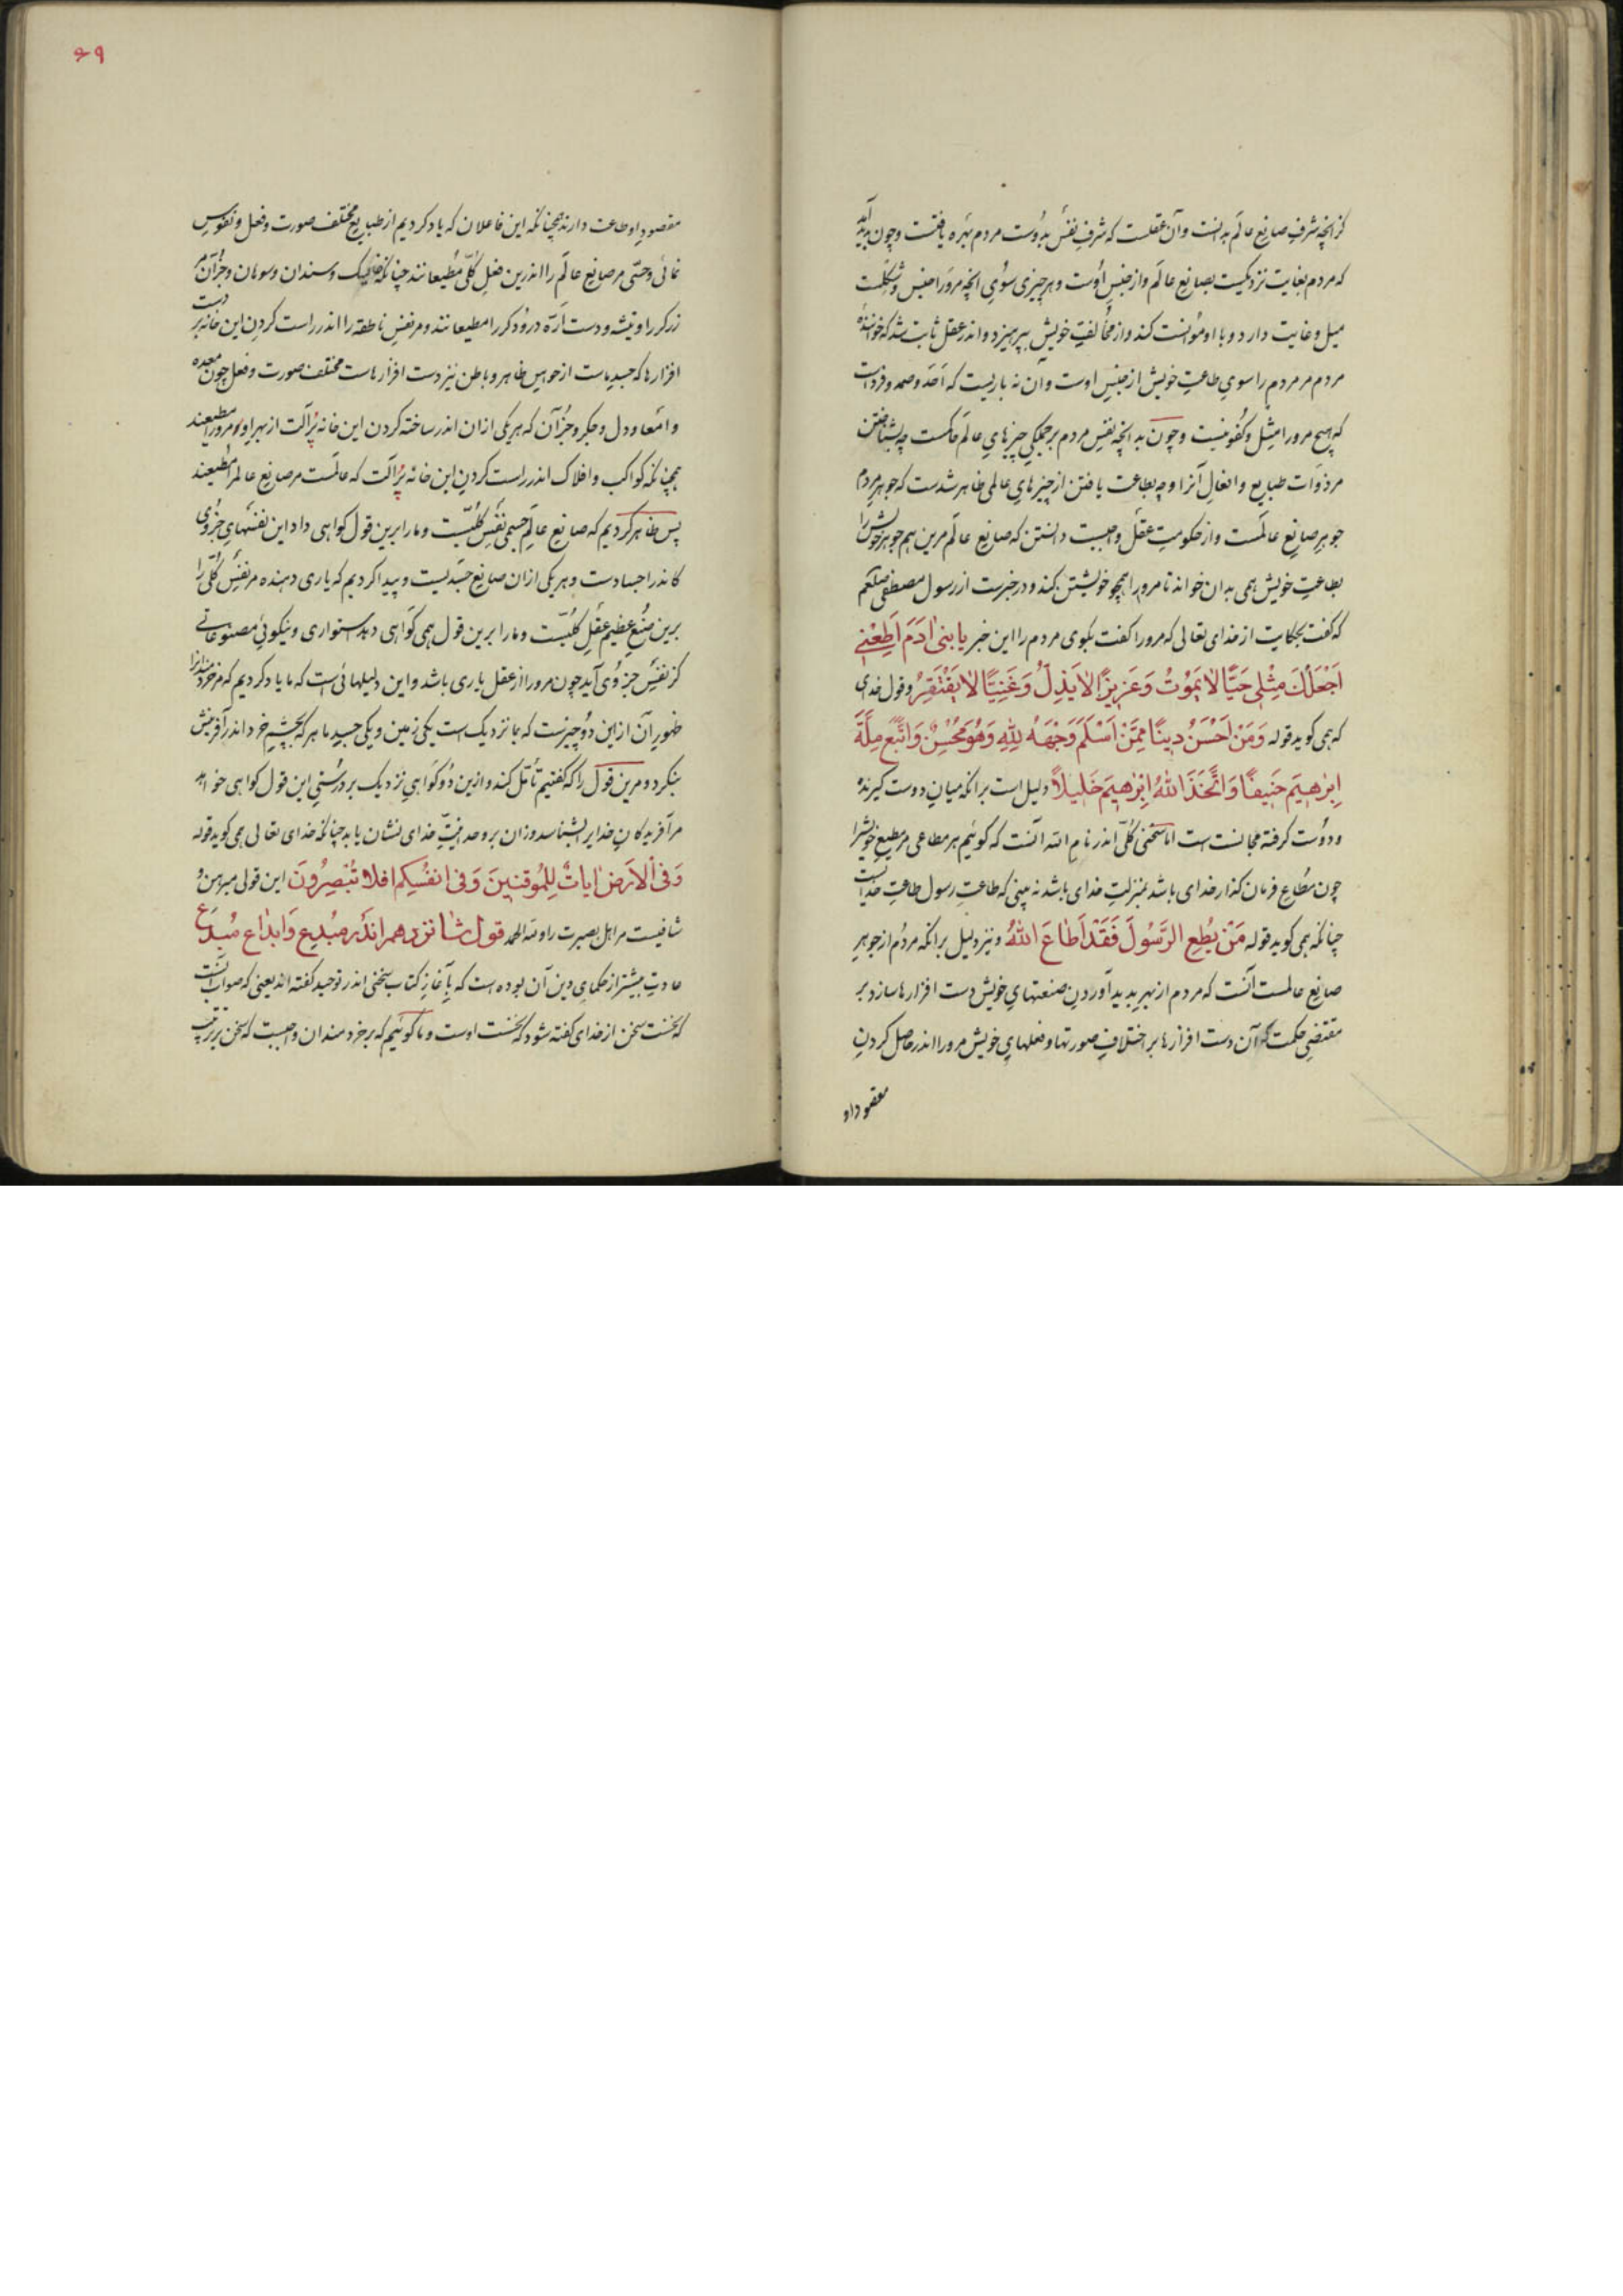 کز انچه شرف صانع عالم بدانست وآن عقلست که شرف نفس بدوست مردم بهره یافتست وچون پدید آید
که مردم بغایت نزدیکیست بصانع عالم واز جنس اوست وهر چیزی سوی انچه مرورا جنس وشکلست
میل وعنایت دارد وبا او موانست کند واز مخالف خویش بپرهیزد واندر عقل ثابت شد که خوانندهٔ
مردم مر مردم را سوی طاعت خویش از جنس اوست وآن نه باریست که احد وصمد وفردا ست
که هیچ مرورا مثل وکفو نیست وچون بد انچه نفس مردم بر جملگی چیزهای عالم حاکمست چه بشناختن
مر ذوات طبایع وافعال آنرا وچه بطاعت یافتن از چیزهای عالمی ظاهر شدست که جوهر مردم
جوهر صانع عالمست واز حکومت عقل واجبست دانستن که صانع عالم مرین هم جوهر خویش را
بطاعت خویش همی بدان خواند تا مرورا همچو خویشتن بکند ودر خبرست از رسول مصطفی صلعم
که گفت بحکایت از خدای تعالی که مرورا گفت بگوی مردم را این خبر یا بنی ادم اطعنی
اجعلک مثلی حیا لا یموت وعزیزا لا یذل وغنیا لا یفتقر وقول خدای
که همی کوید قوله ومن احسن دینا ممن اسلم وجهه لله وهو محسن واتبع ملة
ابرهیم حنیفا واتخذ الله ابرهیم خلیلا دلیل است برانکه میان دوست کیرنده
ودوست کرفته مجانست است اما سخنی کلی اندر نام الله آنست که کوئیم هر مطاعی مر مطیع خویشرا
چون مطاع فرمان گذار خدای باشد بمنزلت خدای باشد نه بینی که طاعت رسول طاعت خدا است
چنانکه همی کوید قوله من یطع الرسول فقد اطاع الله ونیز دلیل برانکه مردم از جوهر
صانع عالمست آنست که مردم از بهر پدید آوردن صنعتهای خویش دست افزارها سازد بر
مقتضی حکمت که آن دست افزارها بر اختلاف صورتها وفعلهای خویش مرورا اندر حاصل کردن
مقصود او
۶۹
مقصود او طاعت دارند همچنانکه این فاعلان که یاد کردیم از طبایع مختلف صورت وفعل ونفوس
نمائی وحسّی مر صانع عالم را اندرین فعل کلّی مطیعانند چنانکه خایسک وسندان وسوهان وجز آن مر
زرگر را وتیشه ودست ارّه درودگر را مطیعانند ومر نفس ناطقه را اندر راست کردن این خانه پر دست
افزارها که جسد ماست از حواس ظاهر وباطن نیز دست افزارهاست مختلف صورت وفعل چون معده
وامعا ودل وجگر وجز آن که هر یکی ازان اندر ساخته کردن این خانه پر آلت از بهر او مرورا مطیعند
همچنانکه کواکب وافلاک اندر راست کردن این خانه پر آلت که عالمست مر صانع عالم را مطیعند
پس ظاهر کردیم که صانع عالم جسمی نفس کلّیست ومارا برین قول کواهی داد این نفسهای جزوی
کاندر اجسادست وهر یکی ازان صانع جسدیست وپیدا کردیم که یاری دهنده مر نفس کلّی را
برین صنع عظیم عقل کلّیست ومارا برین قول همی کواهی دهد استواری ونیکوئی مصنوعاتی
کز نفس جزوی آید چون مرورا از عقل یاری باشد واین دلیلهائی است که ما یاد کردیم که مر خردمندانرا
ظهور آن ازین دو چیزست که بما نزدیک است یکی زمین ویکی جسد ما هر که بچشم خرد اندر آفرینش
بنکرد ومرین قول را که کفتیم تأمّل کند وازین دو کواهی نزدیک بر درستی این قول کواهی خواهد
مر آفریدکان خدایرا بشناسد وزان بر وحدانیّت خدای نشان یابد چنانکه خدای تعالی همی کوید قوله
وفی الارض ایات للموقنین وفی انفسکم افلا تبصرون این قولی مبرهن و
شافیست مر اهل بصیرت را ولله الحمد قول شانزدهم اندر مبدع وابداع مبدع
عادت بیشتر از حکمای دین آن بوده است که بآغاز کتاب سخنی اندر توحید گفته اند یعنی که صواب آنست
که نخست سخن از خدای کفته شود که نخست اوست وما کوئیم که بر خردمندان واجبست که سخن بر ترتیب